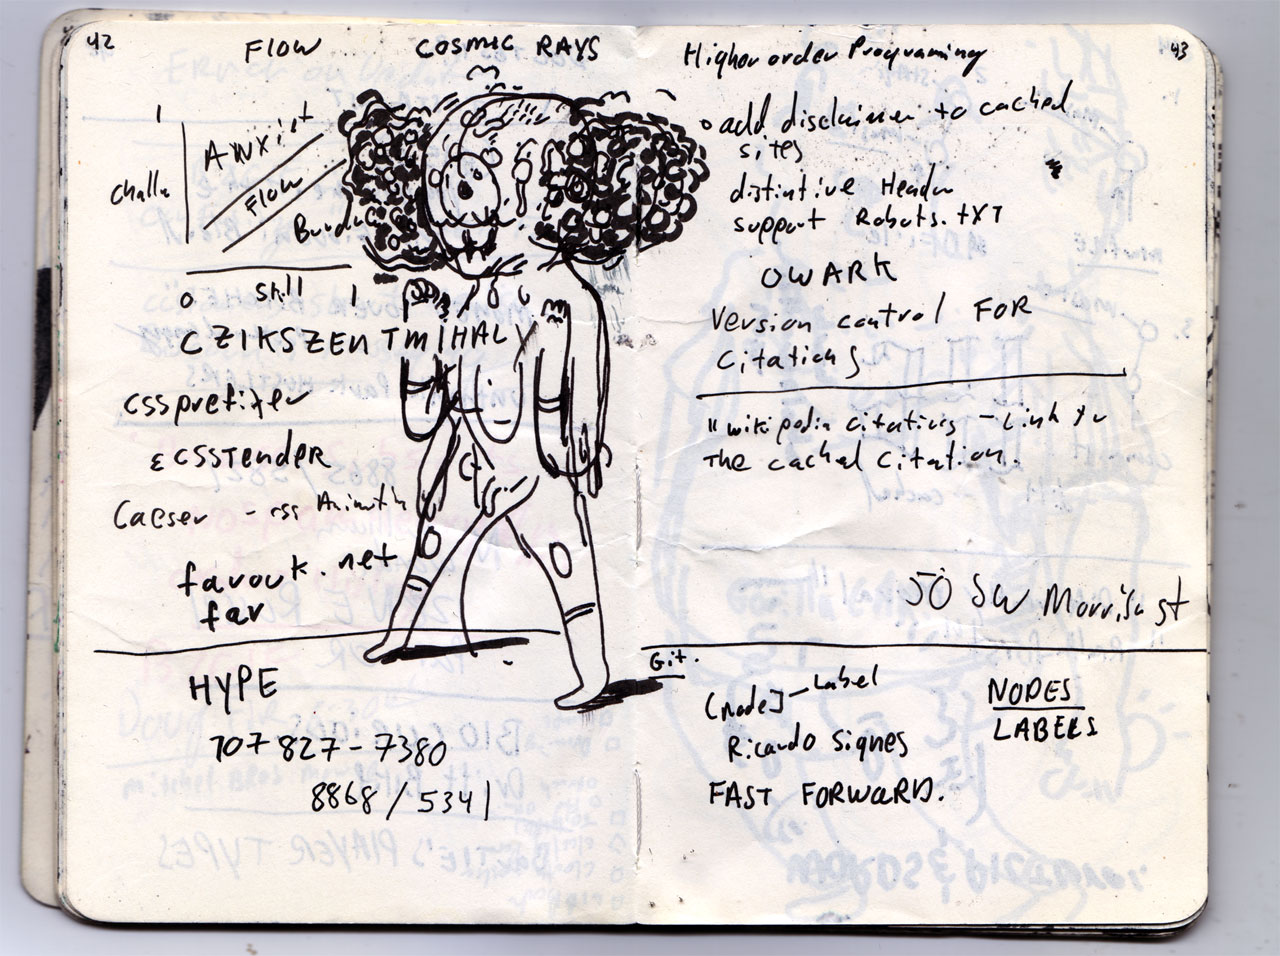 42
FLOW COSMIC RAYS
Challe
AWXiet
FLOW
o skill 1
CZIKSZENTMIHALY
cssprefixer
& CSSTender
Caeser - css Azimuth
favouk.net
far
HYPE
707 827-7380
8868/5341
43
Higher order Programing
o add disclaimer to cached
sites
distintive Header
support Robots.tXT
OWARK
Version control FOR
Citations
"wikipedia citations - Link to
The cached Citation.
50 SW Morrison st
Git.
[node] - Label
Ricardo Signes
FAST FORWARD.
NODES
LABELS
BIO CURIOUS
BARTLE'S PLAYER TYPES